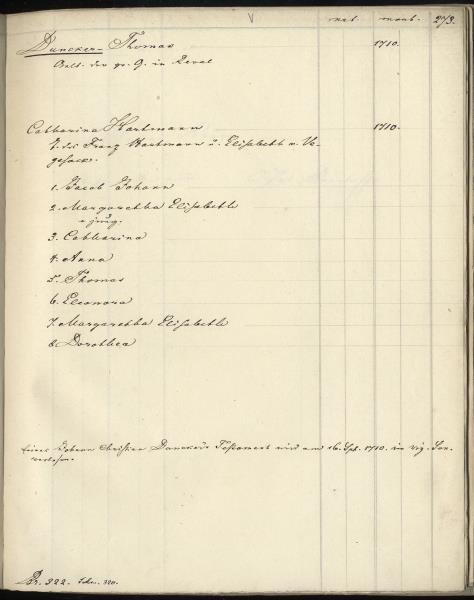 nat. mort. 273.
Duncker- Thomas 1710.
Aelt. der gr. G. in Reval
Catharina Hartmann 1710.
T. des Franz Hartmann u. Elisabeth v. Ve-
gesack.
1. Jacob Johann
2. Margaretha Elisabeth
3. Catharina
4. Anna
5. Thomas
6. Eleonora
7. Margaretha Elisabeth
8. Dorothea
Eines Johann Christian Duncker's Testament wird am 16. Spt. 1710. in
verlesen.
Br. 322.